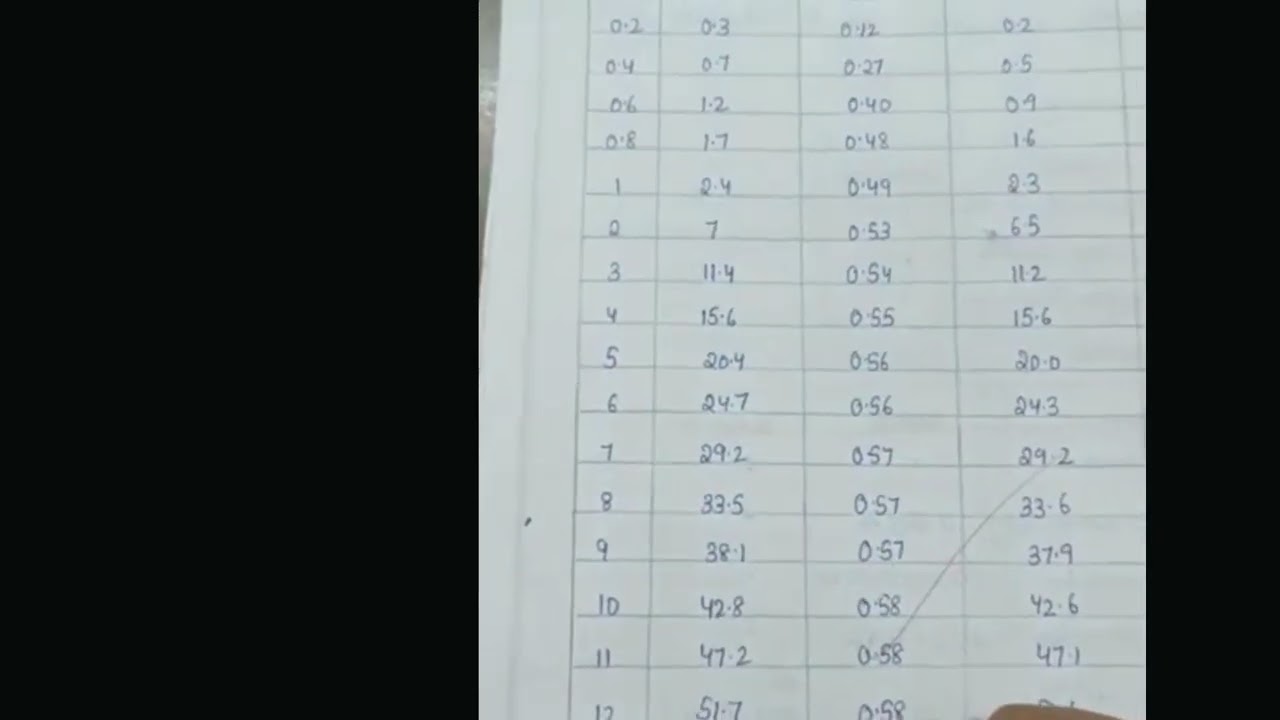 0.2 0.3 0.12 0.2
0.4 0.7 0.27 0.5
0.6 1.2 0.40 0.9
0.8 1.7 0.48 1.6
1 2.4 0.49 2.3
2 7 0.53 6.5
3 11.4 0.54 11.2
4 15.6 0.55 15.6
5 20.4 0.56 20.0
6 24.7 0.56 24.3
7 29.2 0.57 29.2
8 33.5 0.57 33.6
9 38.1 0.57 37.9
10 42.8 0.58 42.6
11 47.2 0.58 47.1
12 51.7 0.58